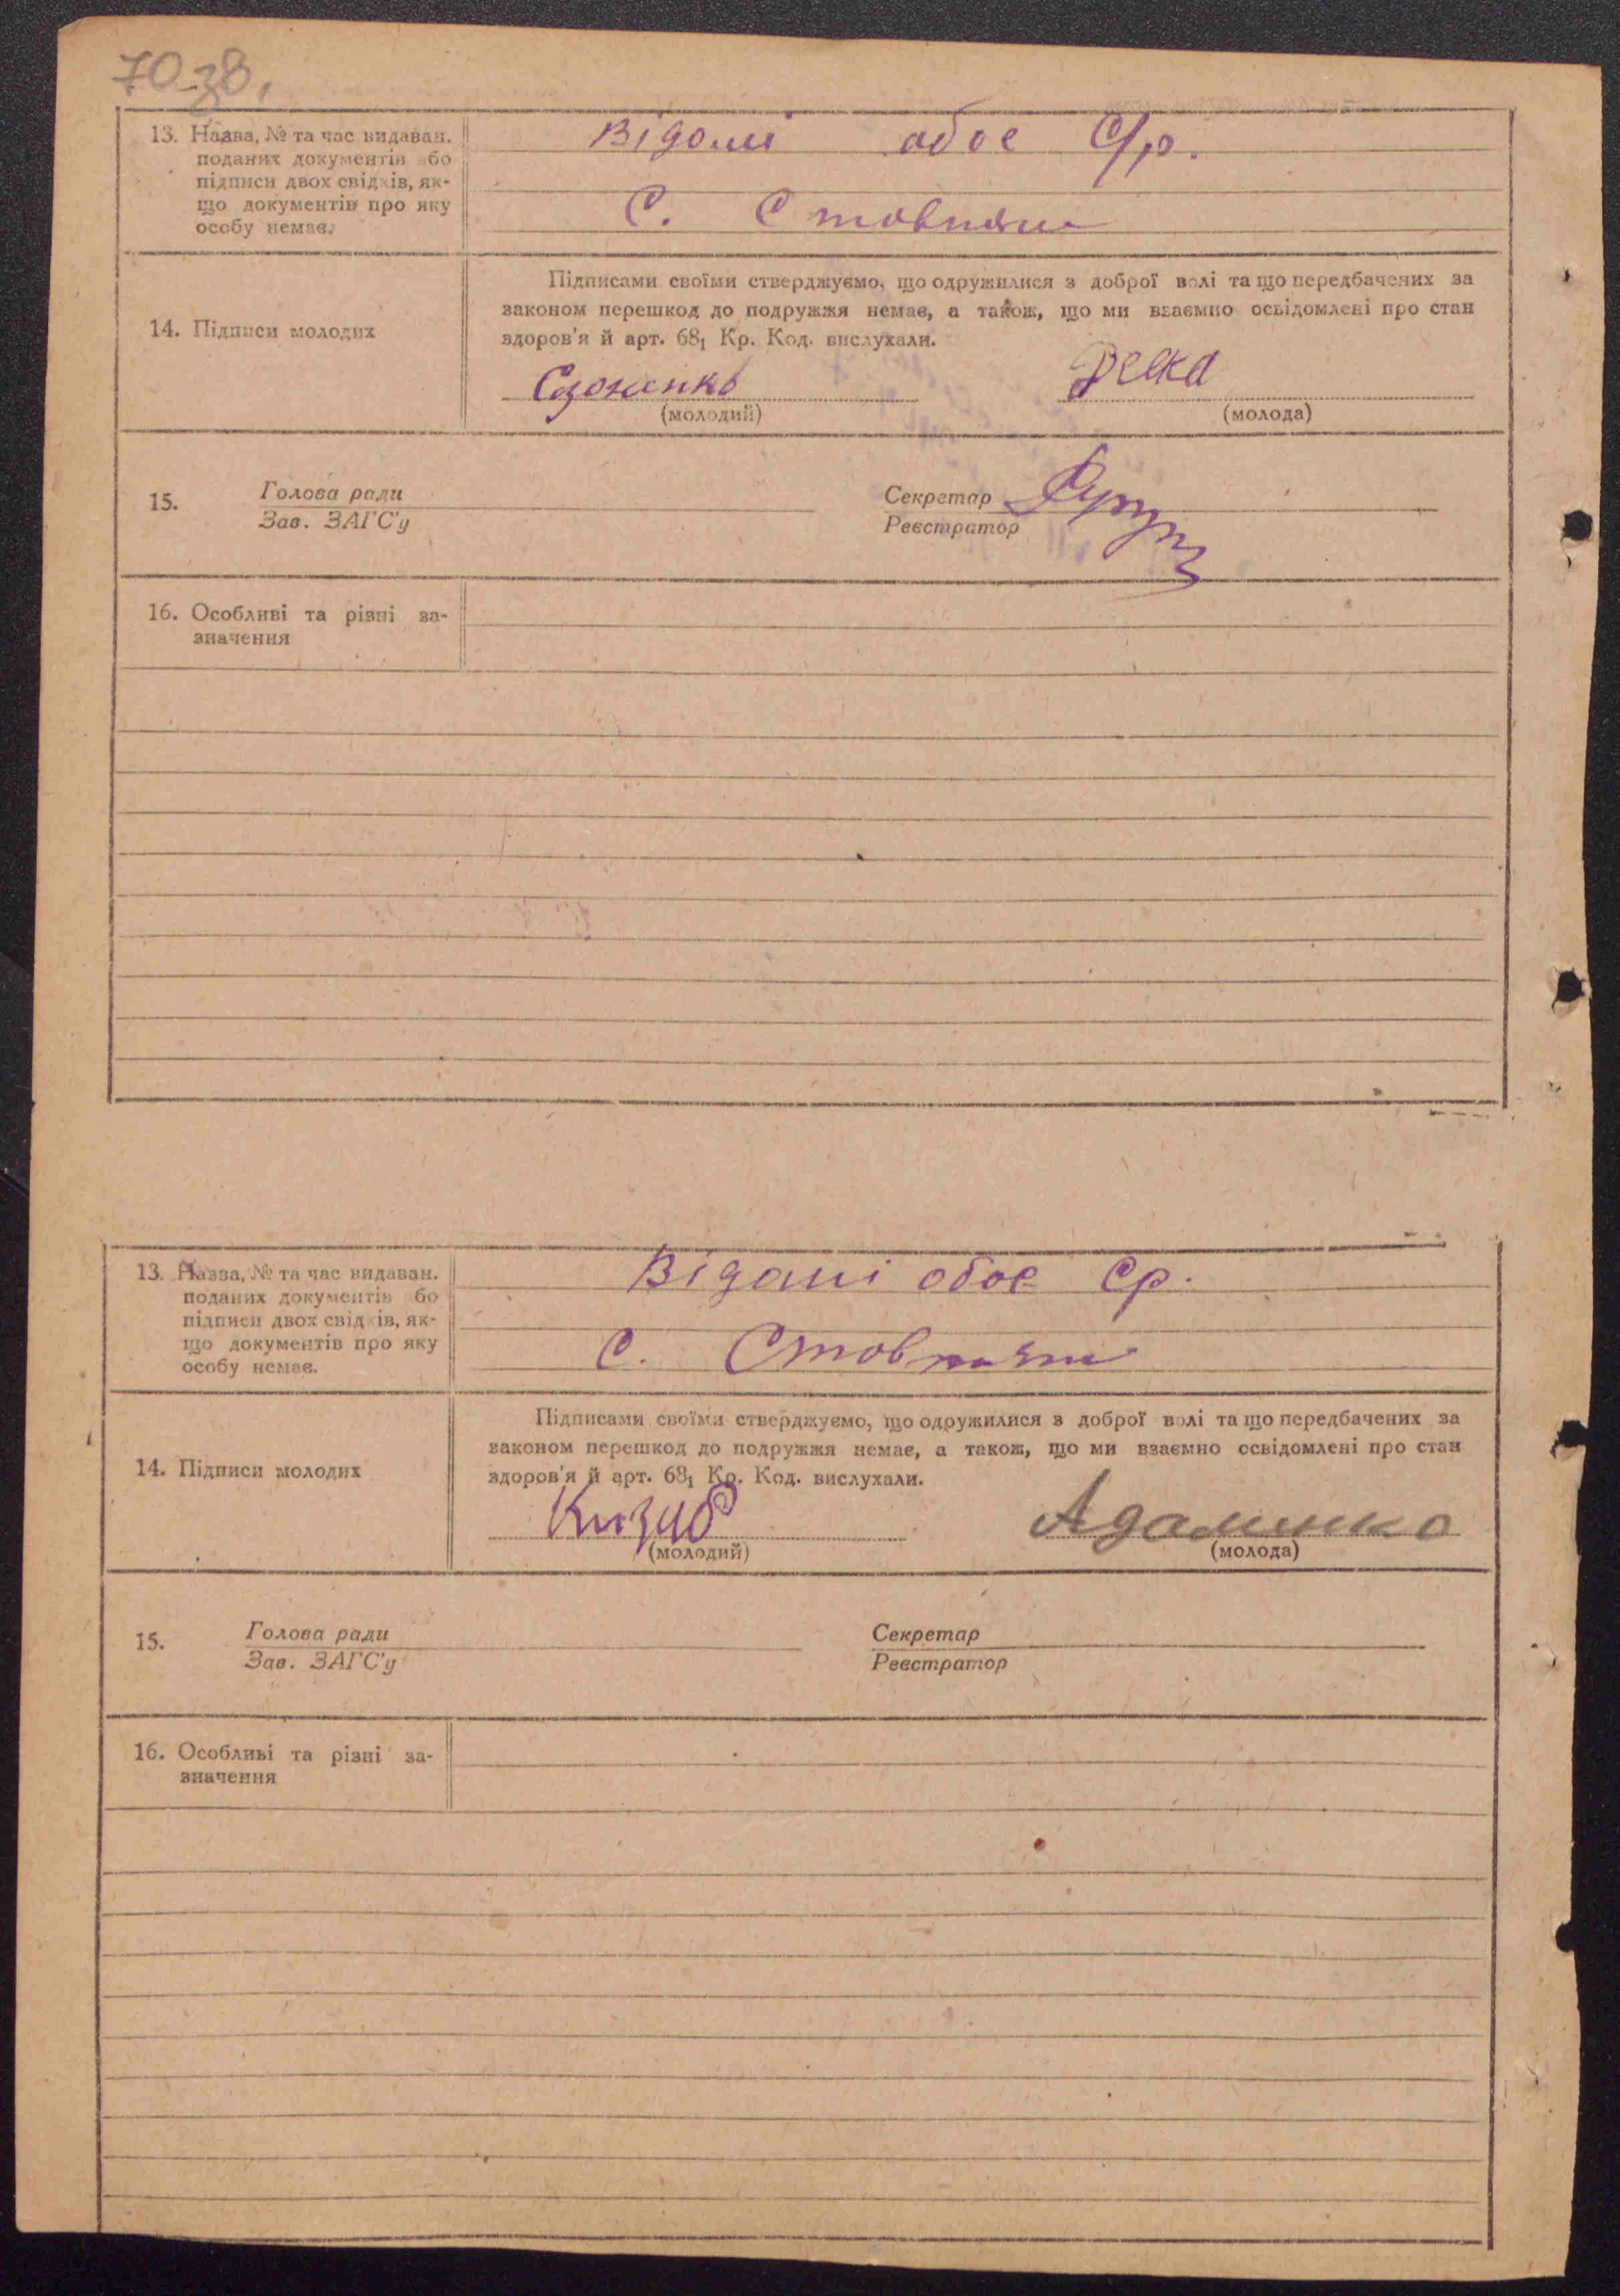 70 зв.
13. Назва, № та час видаван.
поданих документів або
підписи двох свідків, як-
що документів про яку
особу немає.
Відомі обоє с/р.
с. Стовпяги
14. Підписи молодих
Підписами своїми стверджуємо, що одружилися з доброї волі та що передбачених за
законом перешкод до подружжя немає, а також, що ми взаємно освідомлені про стан
здоров'я й арт. 68₁ Кр. Код. вислухали.
Созоненко
(молодий)
(молода)
15.
Голова ради
Зав. ЗАГС'у
Секретар
Реєстратор
16. Особливі та різні за-
значення
13. Назва, № та час видаван.
поданих документів або
підписи двох свідків, як-
що документів про яку
особу немає.
Відомі обоє ср.
с. Стовпяги
14. Підписи молодих
Підписами своїми стверджуємо, що одружилися з доброї волі та що передбачених за
законом перешкод до подружжя немає, а також, що ми взаємно освідомлені про стан
здоров'я й арт. 68₁ Кр. Код. вислухали.
Адаменко
(молодий)
(молода)
15.
Голова ради
Зав. ЗАГС'у
Секретар
Реєстратор
16. Особливі та різні за-
значення